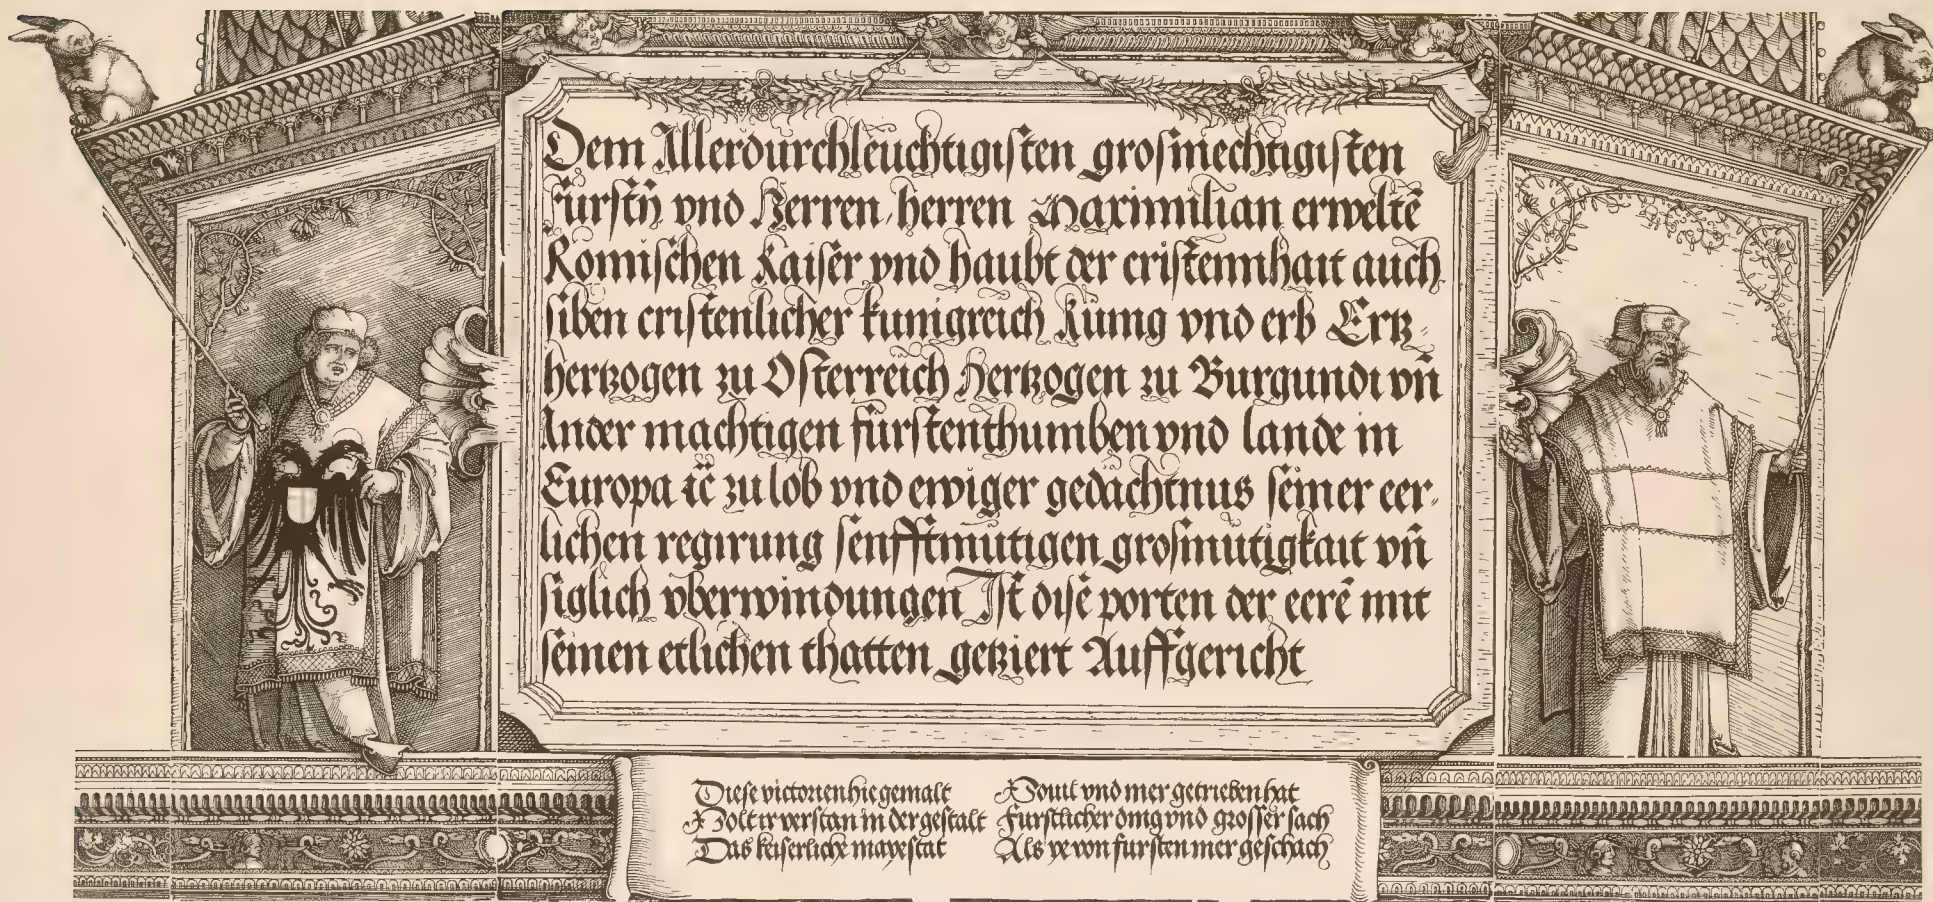 Dem Allerdurchleuchtigisten grosmechtigisten
fürstn̄ vnd Herren herren Maximilian erweltē
Romischen Kaiser vnd haubt der cristennhait auch
siben cristenlicher kunigreich Künig vnd erb Ertz⸗
hertzogen zu Osterreich Hertzogen zu Burgundi vn̄
Ander machtigen fürstenthumben vnd lande in
Europa ꝛc̄ zu lob vnd ewiger gedächtnus seiner eer⸗
lichen regirung senfftmütigen grosmütigkait vn̄
siglich vberwindungen Ist disē porten der eerē mit
seinen etlichen thatten getziert Auffgericht
Diese victorien hie gemalt
Wolt ir verstan in der gestalt
Das keiserliche mayestat
Souil vnd mer getrieben hat
Furstlicher ding vnd grosser sach
Als ye von fursten mer geschach